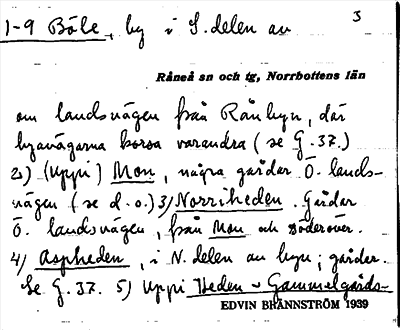 1-9 Böle, by i S. delen av
3
Råneå sn och tg, Norrbottens län
om landsvägen från Rånbyn, där
byavägarna korsa varandra (se G. 37.)
2) (Uppi) Mon, några gårdar Ö. lands-
vägen (se d.o.) 3) Norriheden. Gårdar
Ö. landsvägen, från Mon och söderöver.
4) Aspheden, i N. delen av byn; gårdar.
Se G. 37. 5) Uppi Heden - Gammelgårds-
EDVIN BRÄNNSTRÖM 1939